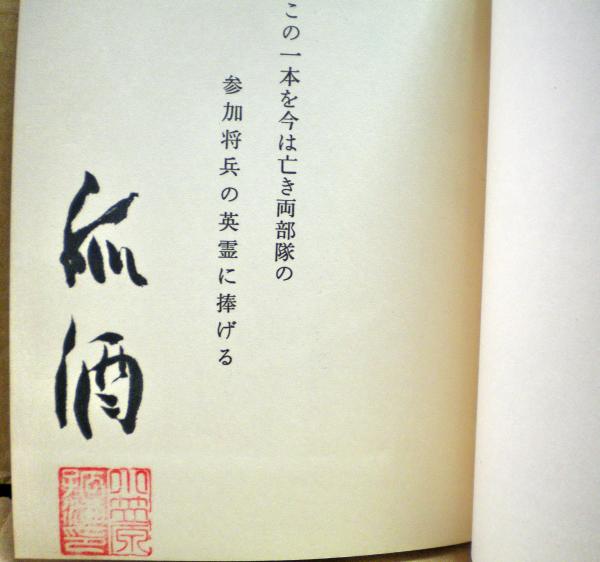 この一本を今は亡き両部隊の
参加将兵の英霊に捧げる
孤酒